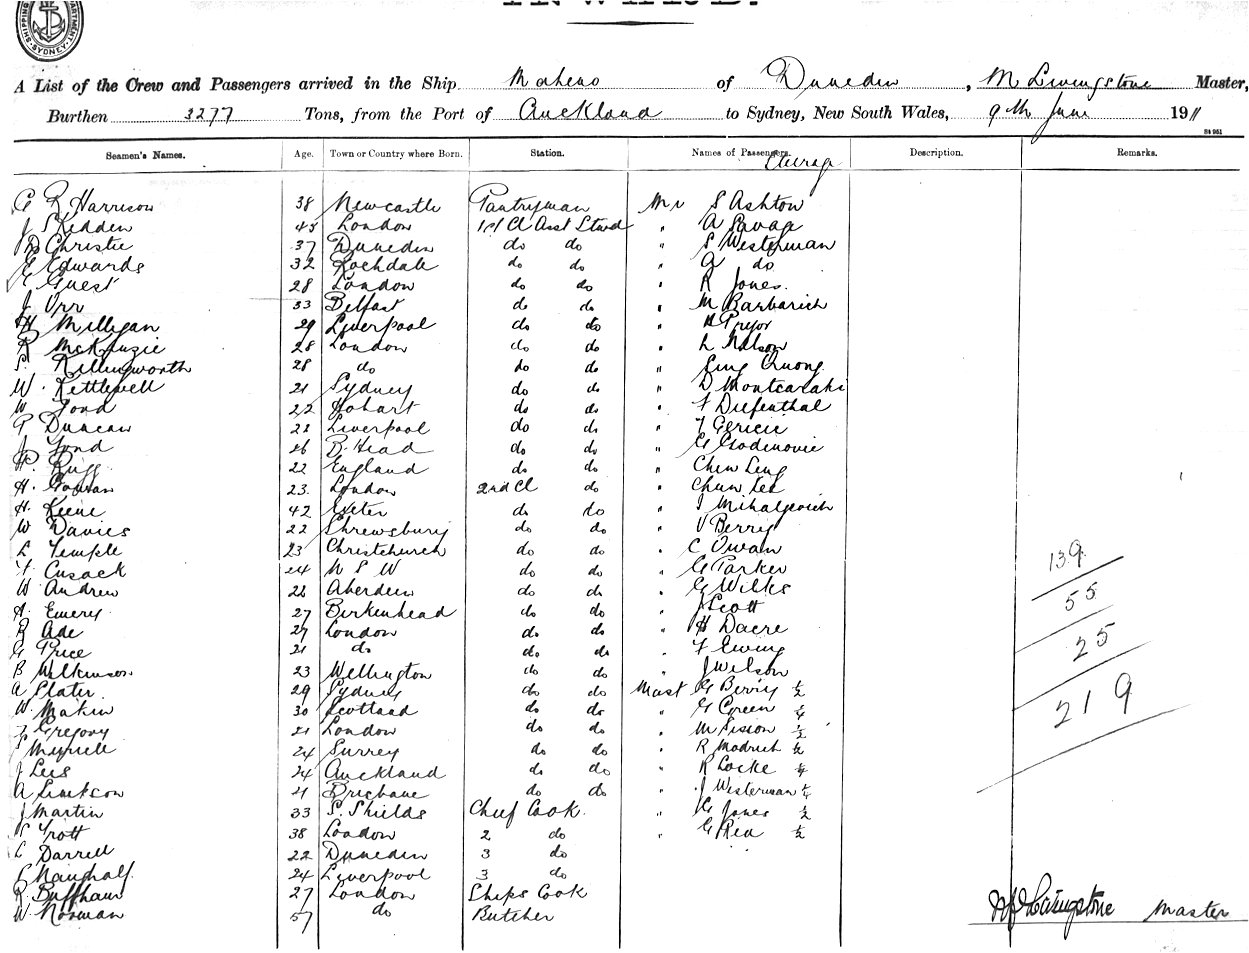 SHIPPING DEPARTMENT SYDNEY
INWARD.
A List of the Crew and Passengers arrived in the Ship Maheno of Dunedin, M Livingstone Master,
Burthen 3277 Tons, from the Port of Auckland to Sydney, New South Wales, 9th June 1911
Seamen's Names. Age. Town or Country where Born. Station. Names of Passengers. Description. Remarks.
Steerage
G R Harrison 38 Newcastle Pantryman Mr S Ashton
J Skedden 45 London 1st Cl Asst Stwd " A Savage
Christie 37 Dunedin do do " S Westerman
E Edwards 32 Rochdale do do " G do
Guest 28 London do do " R Jones
J Orr 33 Belfast do do " M Barbarich
H Milligan 29 Liverpool do do " Pregor
R McKenzie 28 London do do " L Nelson
S. Killingworth 28 do do do " Quong
W. Kettlewell 21 Sydney do do " D
W Fond 22 Hobart do do " F Diefenthal
P Duncan 22 Liverpool do do " F
J Fond 26 B. Head do do " G
Rugg 22 England do do " Chew Ling
H. 23 London 2nd Cl do " Chun Lee
H. Keene 42 Exeter do do " I Mihaljevich
W Davies 22 Shrewsbury do do " V Berry
L Temple 23 Christchurch do do " C Owam
F. Cusack 24 N S W do do " G Parker
W Andrew 22 Aberdeen do do " G Wilks
H. Emery 27 Birkenhead do do " J Scott
R Ade 27 London do do " H Dacre
G Price 21 do do do " F Ewing
B Wilkinson 23 Wellington do do " J Wilson
A Slater 29 Sydney do do Mast G Berry ½
W. Makin 30 Scotland do do " G Green ¼
Gregory 21 London do do " M Sision ½
Myrtell 24 Surrey do do " R Modrich ½
J Lees 24 Auckland do do " R Locke ¼
A 21 Brisbane do do " J Westerman ¼
J Martin 33 S. Shields Chief Cook " G Jones ½
Trott 38 London 2 do " G Rea ½
L Darrell 22 Dunedin 3 do
24 Liverpool 3 do
R. Buffham 27 London Ships Cook
W. Norman 57 do Butcher
139
55
25
219
M Livingstone Master